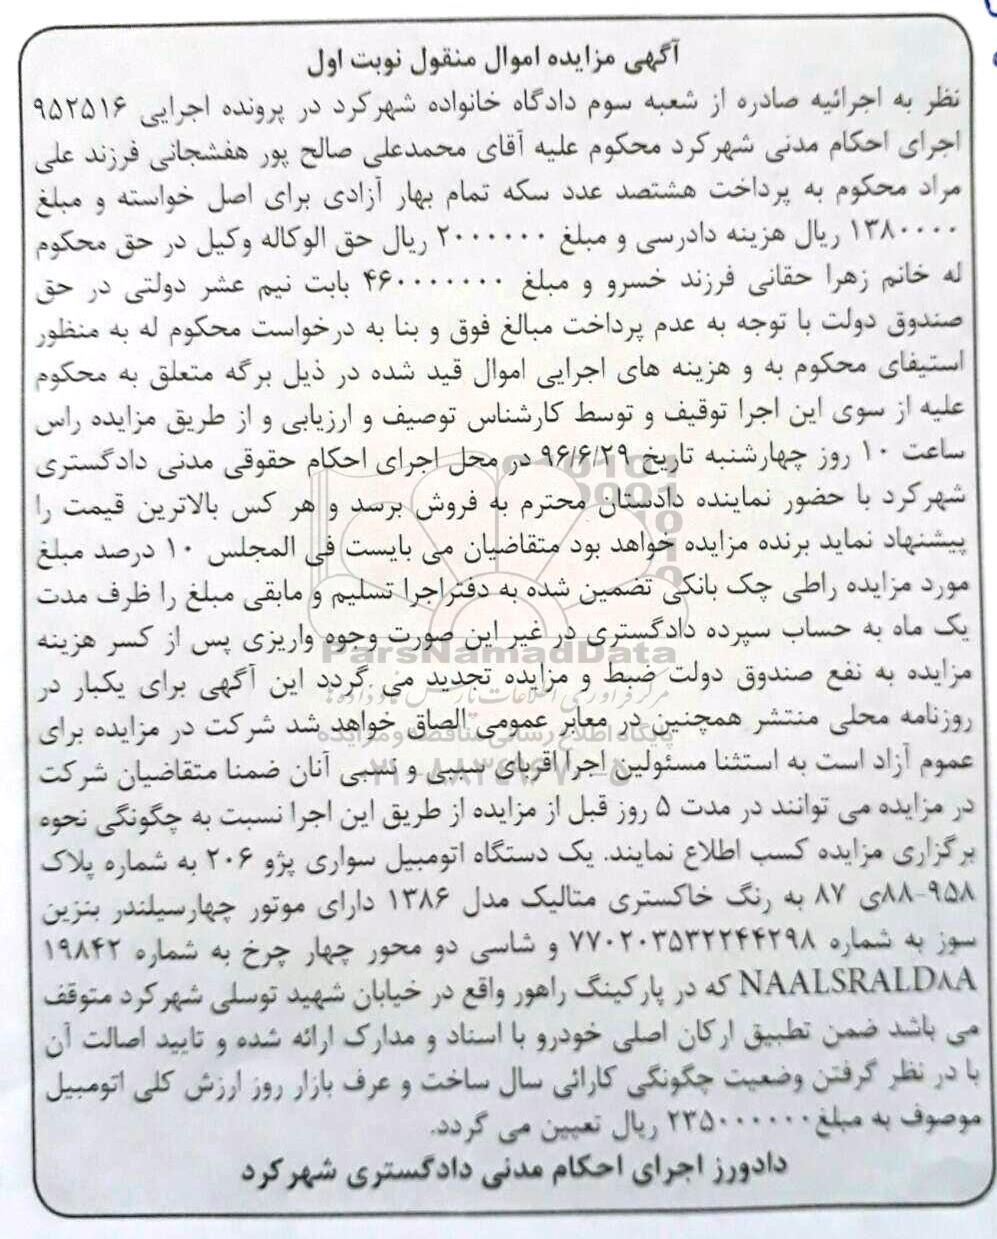 آگهی مزایده اموال منقول نوبت اول
نظر به اجرائیه صادره از شعبه سوم دادگاه خانواده شهرکرد در پرونده اجرایی ۹۵۲۵۱۶
اجرای احکام مدنی شهرکرد محکوم علیه آقای محمدعلی صالح پور هفشجانی فرزند علی
مراد محکوم به پرداخت هشتصد عدد سکه تمام بهار آزادی برای اصل خواسته و مبلغ
۱۳۸۰۰۰۰ ریال هزینه دادرسی و مبلغ ۲۰۰۰۰۰۰ ریال حق الوکاله وکیل در حق محکوم
له خانم زهرا حقانی فرزند خسرو و مبلغ ۴۶۰۰۰۰۰۰۰ بابت نیم عشر دولتی در حق
صندوق دولت با توجه به عدم پرداخت مبالغ فوق و بنا به درخواست محکوم له به منظور
استیفای محکوم به و هزینه های اجرایی اموال قید شده در ذیل برگه متعلق به محکوم
علیه از سوی این اجرا توقیف و توسط کارشناس توصیف و ارزیابی و از طریق مزایده راس
ساعت ۱۰ روز چهارشنبه تاریخ ۹۶/۶/۲۹ در محل اجرای احکام حقوقی مدنی دادگستری
شهرکرد با حضور نماینده دادستان محترم به فروش برسد و هر کس بالاترین قیمت را
پیشنهاد نماید برنده مزایده خواهد بود متقاضیان می بایست فی المجلس ۱۰ درصد مبلغ
مورد مزایده راطی چک بانکی تضمین شده به دفتراجرا تسلیم و مابقی مبلغ را ظرف مدت
یک ماه به حساب سپرده دادگستری در غیر این صورت وجوه واریزی پس از کسر هزینه
ParsNamadData
مزایده به نفع صندوق دولت ضبط و مزایده تجدید می گردد این آگهی برای یکبار در
مرکز فرآوری اطلاعات پارس نماد داده ها
روزنامه محلی منتشر همچنین در معابر عمومی الصاق خواهد شد شرکت در مزایده برای
پایگاه اطلاع رسانی مناقصه و مزایده
عموم آزاد است به استثنا مسئولین اجرا اقربای سببی و نسبی آنان ضمنا متقاضیان شرکت
در مزایده می توانند در مدت ۵ روز قبل از مزایده از طریق این اجرا نسبت به چگونگی نحوه
برگزاری مزایده کسب اطلاع نمایند. یک دستگاه اتومبیل سواری پژو ۲۰۶ به شماره پلاک
۹۵۸-۸۸ی ۸۷ به رنگ خاکستری متالیک مدل ۱۳۸۶ دارای موتور چهارسیلندر بنزین
سوز به شماره ۷۷۰۲۰۳۵۳۲۲۴۴۲۹۸ و شاسی دو محور چهار چرخ به شماره ۱۹۸۴۲
NAALSRALD۸A که در پارکینگ راهور واقع در خیابان شهید توسلی شهرکرد متوقف
می باشد ضمن تطبیق ارکان اصلی خودرو با اسناد و مدارک ارائه شده و تایید اصالت آن
با در نظر گرفتن وضعیت چگونگی کارائی سال ساخت و عرف بازار روز ارزش کلی اتومبیل
موصوف به مبلغ ۲۳۵۰۰۰۰۰۰ ریال تعیین می گردد.
دادورز اجرای احکام مدنی دادگستری شهرکرد